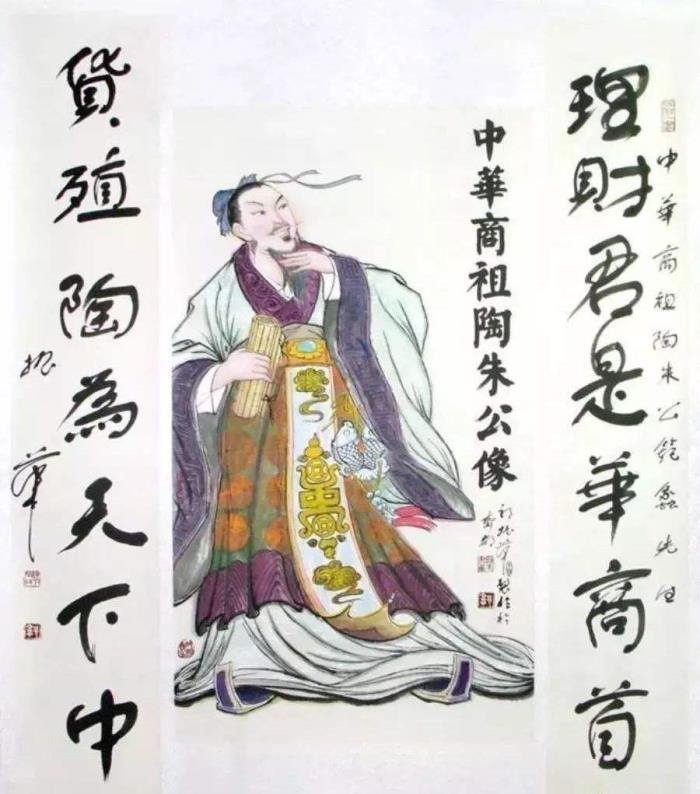 中華商祖陶朱公範蠡先生
理財君是華商首
中華商祖陶朱公像
貨殖陶為天下中
振華